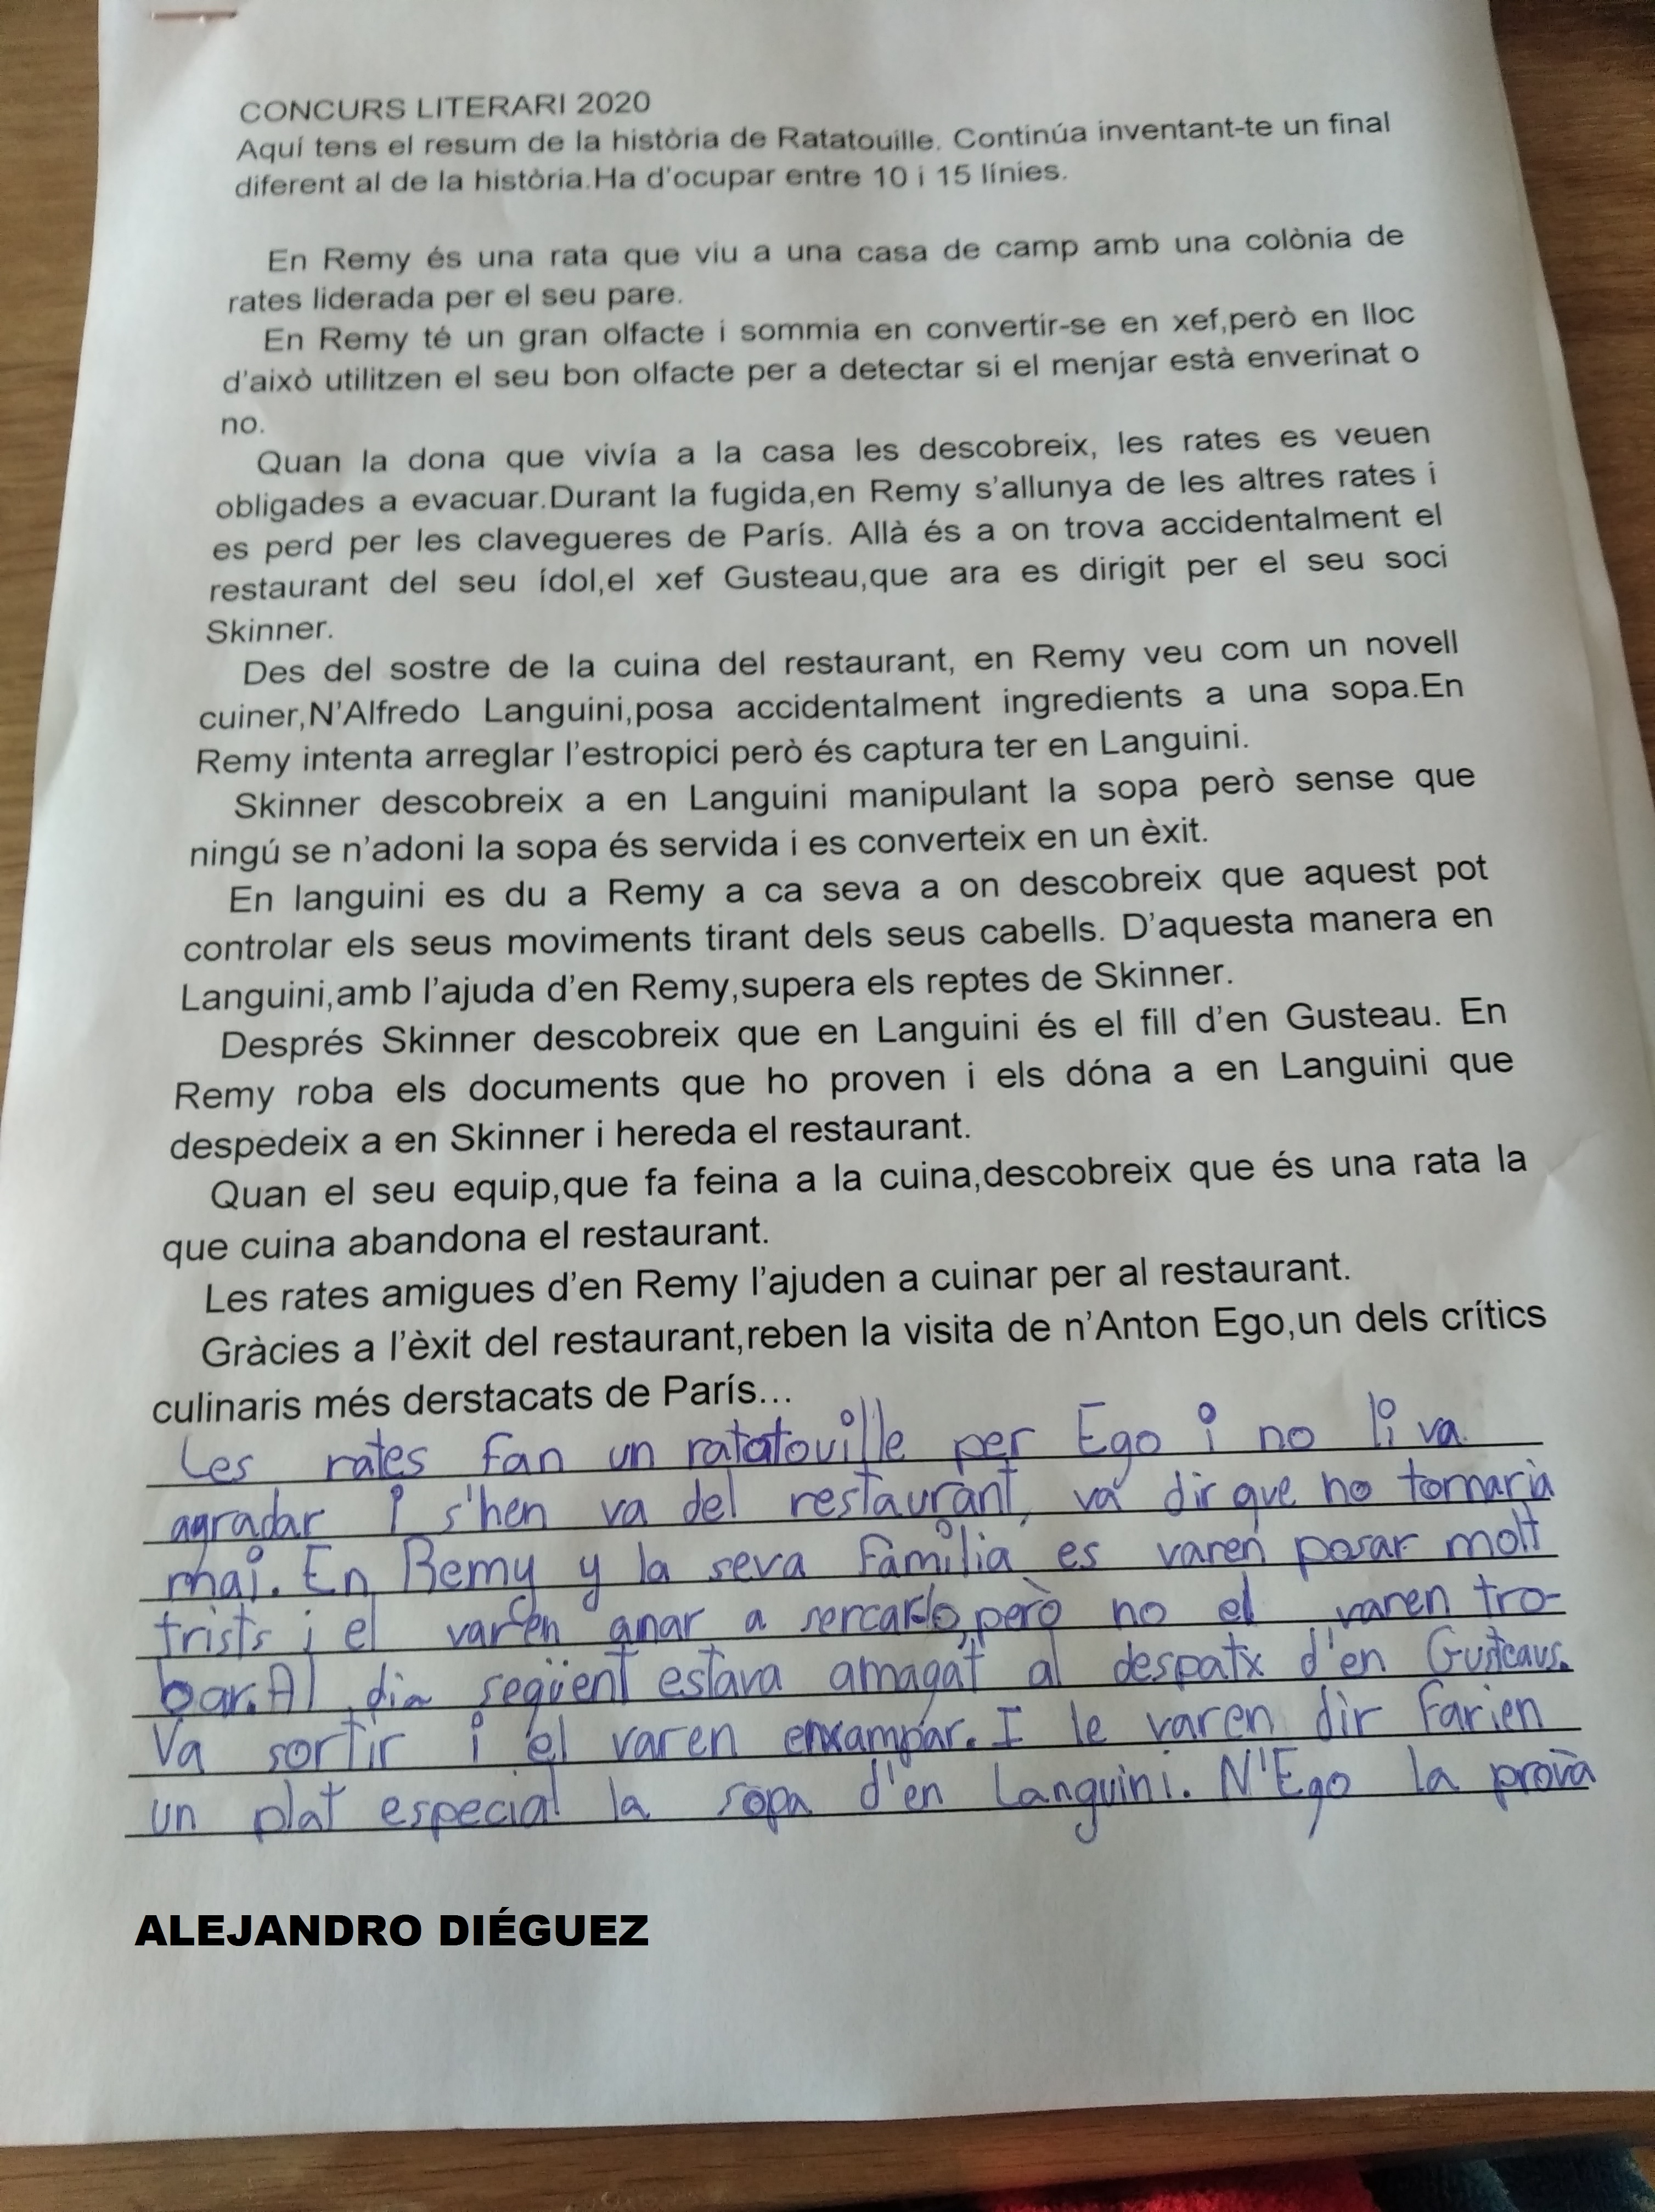 CONCURS LITERARI 2020
Aquí tens el resum de la història de Ratatouille. Continúa inventant-te un final
diferent al de la història.Ha d'ocupar entre 10 i 15 línies.
En Remy és una rata que viu a una casa de camp amb una colònia de
rates liderada per el seu pare.
En Remy té un gran olfacte i sommia en convertir-se en xef,però en lloc
d'això utilitzen el seu bon olfacte per a detectar si el menjar està enverinat o
no.
Quan la dona que vivía a la casa les descobreix, les rates es veuen
obligades a evacuar.Durant la fugida,en Remy s'allunya de les altres rates i
es perd per les clavegueres de París. Allà és a on trova accidentalment el
restaurant del seu ídol,el xef Gusteau,que ara es dirigit per el seu soci
Skinner.
Des del sostre de la cuina del restaurant, en Remy veu com un novell
cuiner,N'Alfredo Languini,posa accidentalment ingredients a una sopa.En
Remy intenta arreglar l'estropici però és captura ter en Languini.
Skinner descobreix a en Languini manipulant la sopa però sense que
ningú se n'adoni la sopa és servida i es converteix en un èxit.
En languini es du a Remy a ca seva a on descobreix que aquest pot
controlar els seus moviments tirant dels seus cabells. D'aquesta manera en
Languini,amb l'ajuda d'en Remy,supera els reptes de Skinner.
Després Skinner descobreix que en Languini és el fill d'en Gusteau. En
Remy roba els documents que ho proven i els dóna a en Languini que
despedeix a en Skinner i hereda el restaurant.
Quan el seu equip,que fa feina a la cuina,descobreix que és una rata la
que cuina abandona el restaurant.
Les rates amigues d'en Remy l'ajuden a cuinar per al restaurant.
Gràcies a l'èxit del restaurant,reben la visita de n'Anton Ego,un dels crítics
culinaris més derstacats de París...
Les rates fan un ratatouille per Ego i no li va
agradar i s'hen va del restaurant, va dir que no tornaria
mai. En Remy y la seva familia es varen posar molt
trists i el varen anar a sercarlo, però no el varen tro-
bar. Al dia següent estava amagat al despatx d'en Gusteaus.
Va sortir i el varen enxampar. I le varen dir farien
un plat especial la sopa d'en Languini. N'Ego la provà
ALEJANDRO DIÉGUEZ